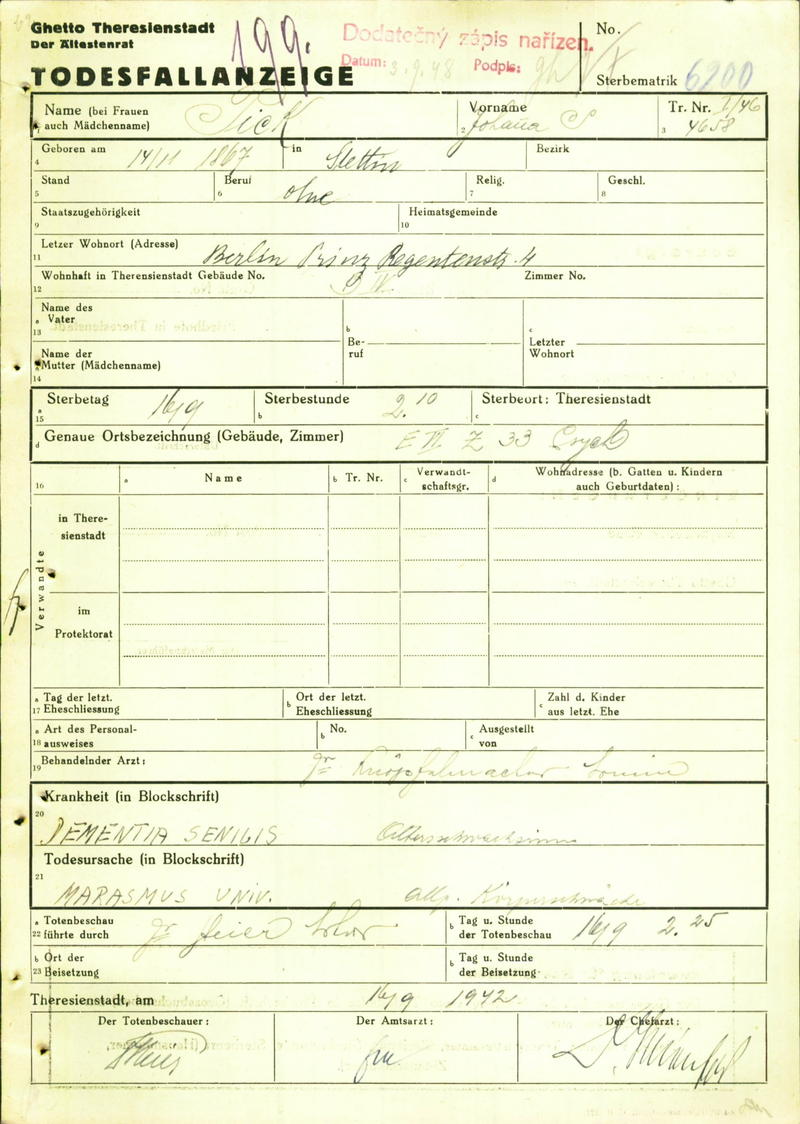 Ghetto Theresienstadt
Der Ältestenrat
TODESFALLANZEIGE
199.
Dodatečný zápis nařízen.
Datum: 3.9.48 Podpis:
No.
Sterbematrik 6200
Name (bei Frauen auch Mädchenname) Pick
2 Vorname Johana S
3 Tr. Nr. I/46 4658
4 Geboren am 14/11 1867 in Stettin Bezirk
5 Stand
6 Beruf ohne
7 Relig.
8 Geschl.
9 Staatszugehörigkeit
10 Heimatsgemeinde
11 Letzer Wohnort (Adresse) Berlin Prinz Regentenstr. 4
12 Wohnhaft in Therensienstadt Gebäude No. Zimmer No.
13 a Name des Vater
b Beruf
c Letzter Wohnort
14 Name der Mutter (Mädchenname)
15 a Sterbetag 16/9
b Sterbestunde 2.10
c Sterbeort: Theresienstadt
d Genaue Ortsbezeichnung (Gebäude, Zimmer) E III Z 33
16 a Name
b Tr. Nr.
c Verwandtschaftsgr.
d Wohnadresse (b. Gatten u. Kindern auch Geburtdaten):
Verwandte
in Theresienstadt
im Protektorat
17 a Tag der letzt. Eheschliessung
b Ort der letzt. Eheschliessung
c Zahl d. Kinder aus letzt. Ehe
18 a Art des Personalausweises
b No.
c Ausgestellt von
19 Behandelnder Arzt: Dr Knöpfelmacher
Krankheit (in Blockschrift)
20
DEMENTIA SENILIS Altersschwachsinn
Todesursache (in Blockschrift)
21
MARASMUS UNIV. allg. Körperschwäche
22 a Totenbeschau führte durch Dr
b Tag u. Stunde der Totenbeschau 16/9 2.25
23 b Ort der Beisetzung
b Tag u. Stunde der Beisetzung
Theresienstadt, am 16/9 1942
Der Totenbeschauer:
Der Amtsarzt:
Der Chefarzt: